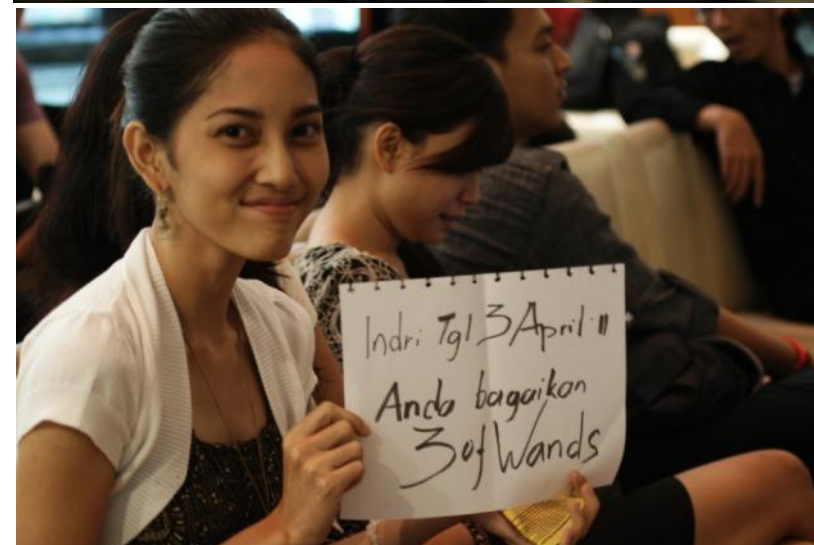 Indri Tgl 3 April 11
Anda bagaikan
3 of Wands